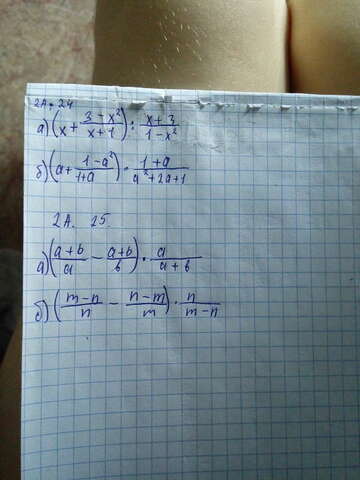 2А. 24
а) (x + 3-x²/x+1) : x+3/1-x²
б) (a + 1-a²/1+a) · 1+a/a²+2a+1
2А. 25.
а) (a+b/a - a+b/b) · a/a+b
б) (m-n/n - n-m/m) · n/m-n